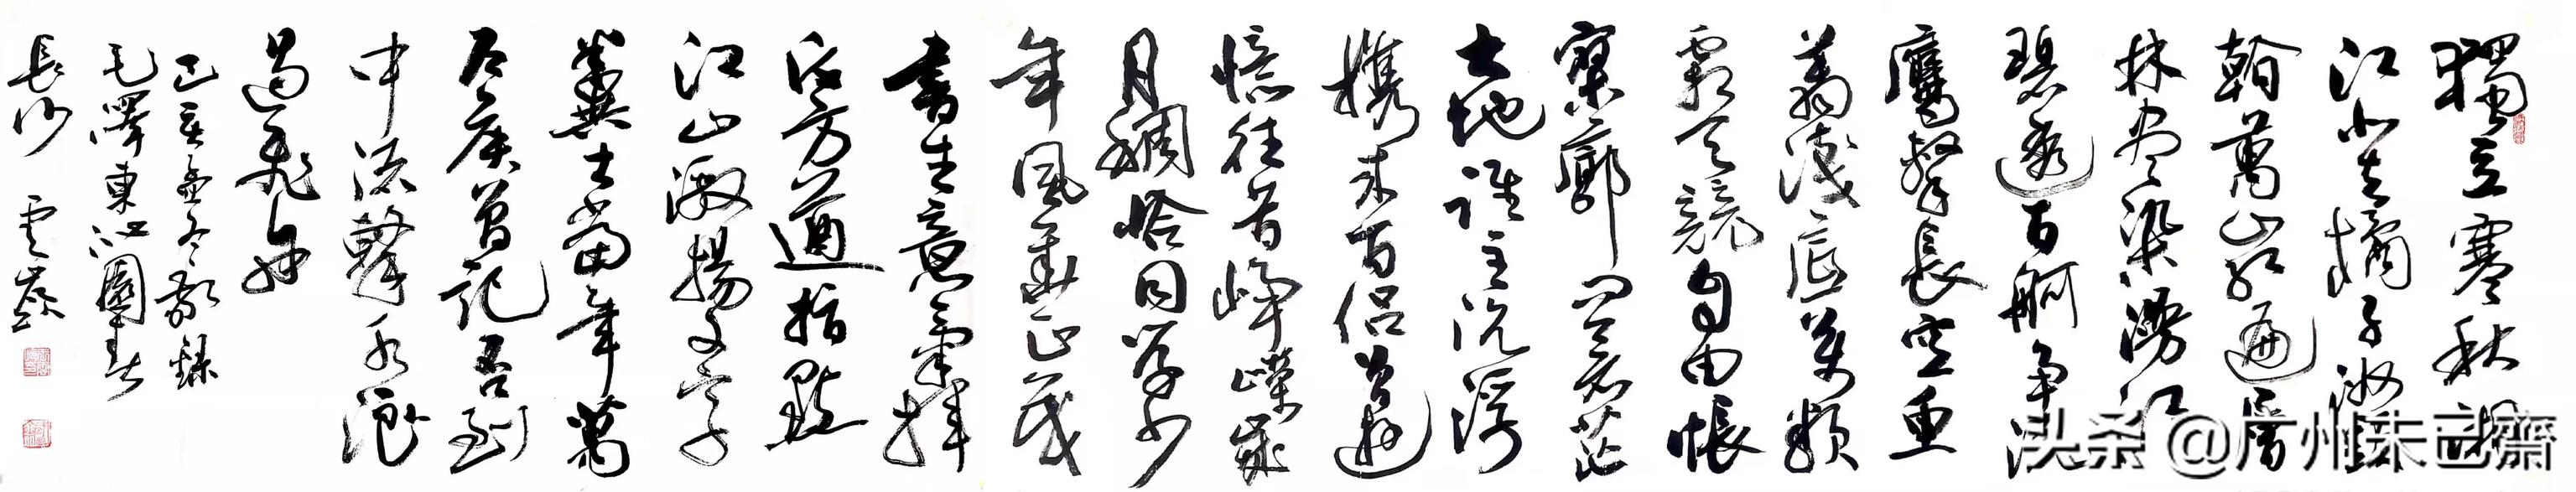 獨立寒秋湘
江北去橘子洲頭
看萬山紅遍層
林盡染漫江
碧透百舸爭流
鷹擊長空魚
翔淺底萬類
霜天競自由悵
寥廓問蒼茫
大地誰主沉浮
携來百侶曾遊
憶往昔崢嶸歲
月稠恰同學少
年風華正茂
書生意氣揮
斥方遒指點
江山激揚文字
糞土當年萬
户侯曾記否到
中流擊水浪
遏飛舟
己亥孟冬敬錄
毛澤東沁園春
長沙 雲
头条 @广州朱己齋